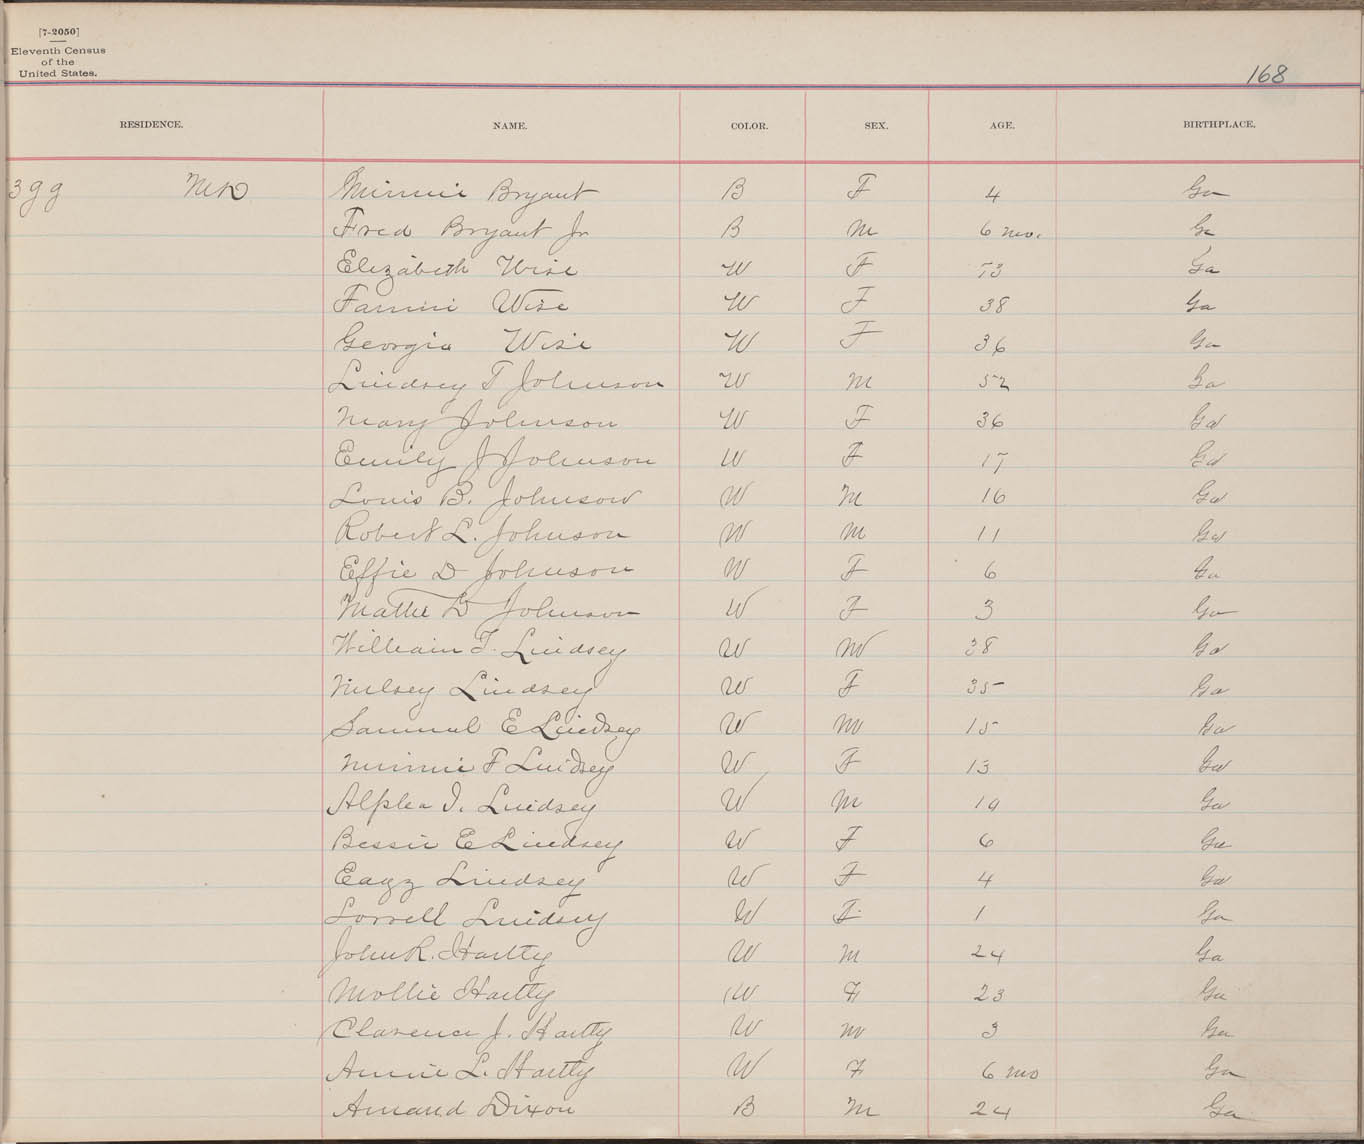 [7-2050]
Eleventh Census
of the
United States.
168
RESIDENCE. NAME. COLOR. SEX. AGE. BIRTHPLACE.
399 MD Minnie Bryant B F 4 Ga
Fred Bryant Jr B M 6 mo. Ga
Elizabeth Wise W F 73 Ga
Fannie Wise W F 38 Ga
Georgia Wise W F 36 Ga
Lindsey T Johnson W M 52 Ga
Mary Johnson W F 36 Ga
Emily J Johnson W F 17 Ga
Louis B. Johnson W M 16 Ga
Robert L. Johnson W M 11 Ga
Effie D Johnson W F 6 Ga
Mattie D Johnson W F 3 Ga
William T. Lindsey W M 38 Ga
Lindsey W F 35 Ga
Sammul E Lindsey W M 15 Ga
Minnie F Lindsey W F 13 Ga
Lindsey W M Ga
Bessie E Lindsey W F 6 Ga
Lindsey W F 4 Ga
Lorrell Lindsey W F 1 Ga
John R. Hartty W M 24 Ga
Mollie Hartty W F 23 Ga
Clarence J. Hartty W M 3 Ga
Annie L. Hartty W F 6 mo Ga
Amand Dixon B M 24 Ga